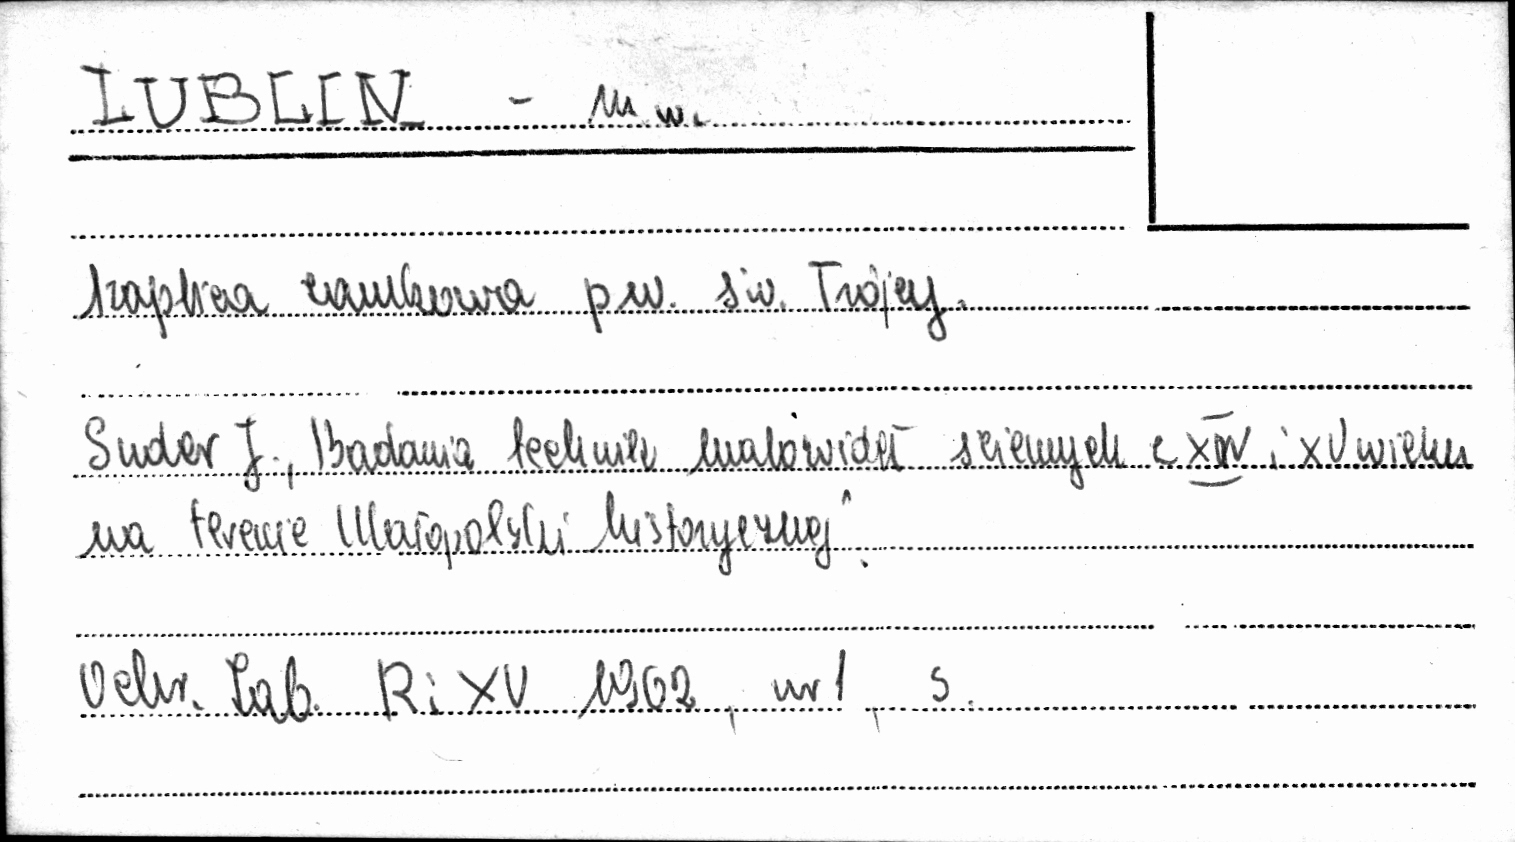 LUBLIN - m.w.
kaplica zamkowa p.w. św. Trójcy.
Suder J., Badania technik malowideł ściennych z XIV i XV wieku
na terenie Małopolski historycznej".
Ochr. Zab. R: XV 1962, nr 1, s.